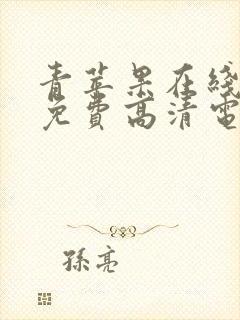 青苹果在线
免费高清電
孫亮